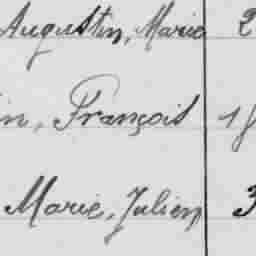 Augustin, Marie 2
in, François 18
Marie, Julien 3